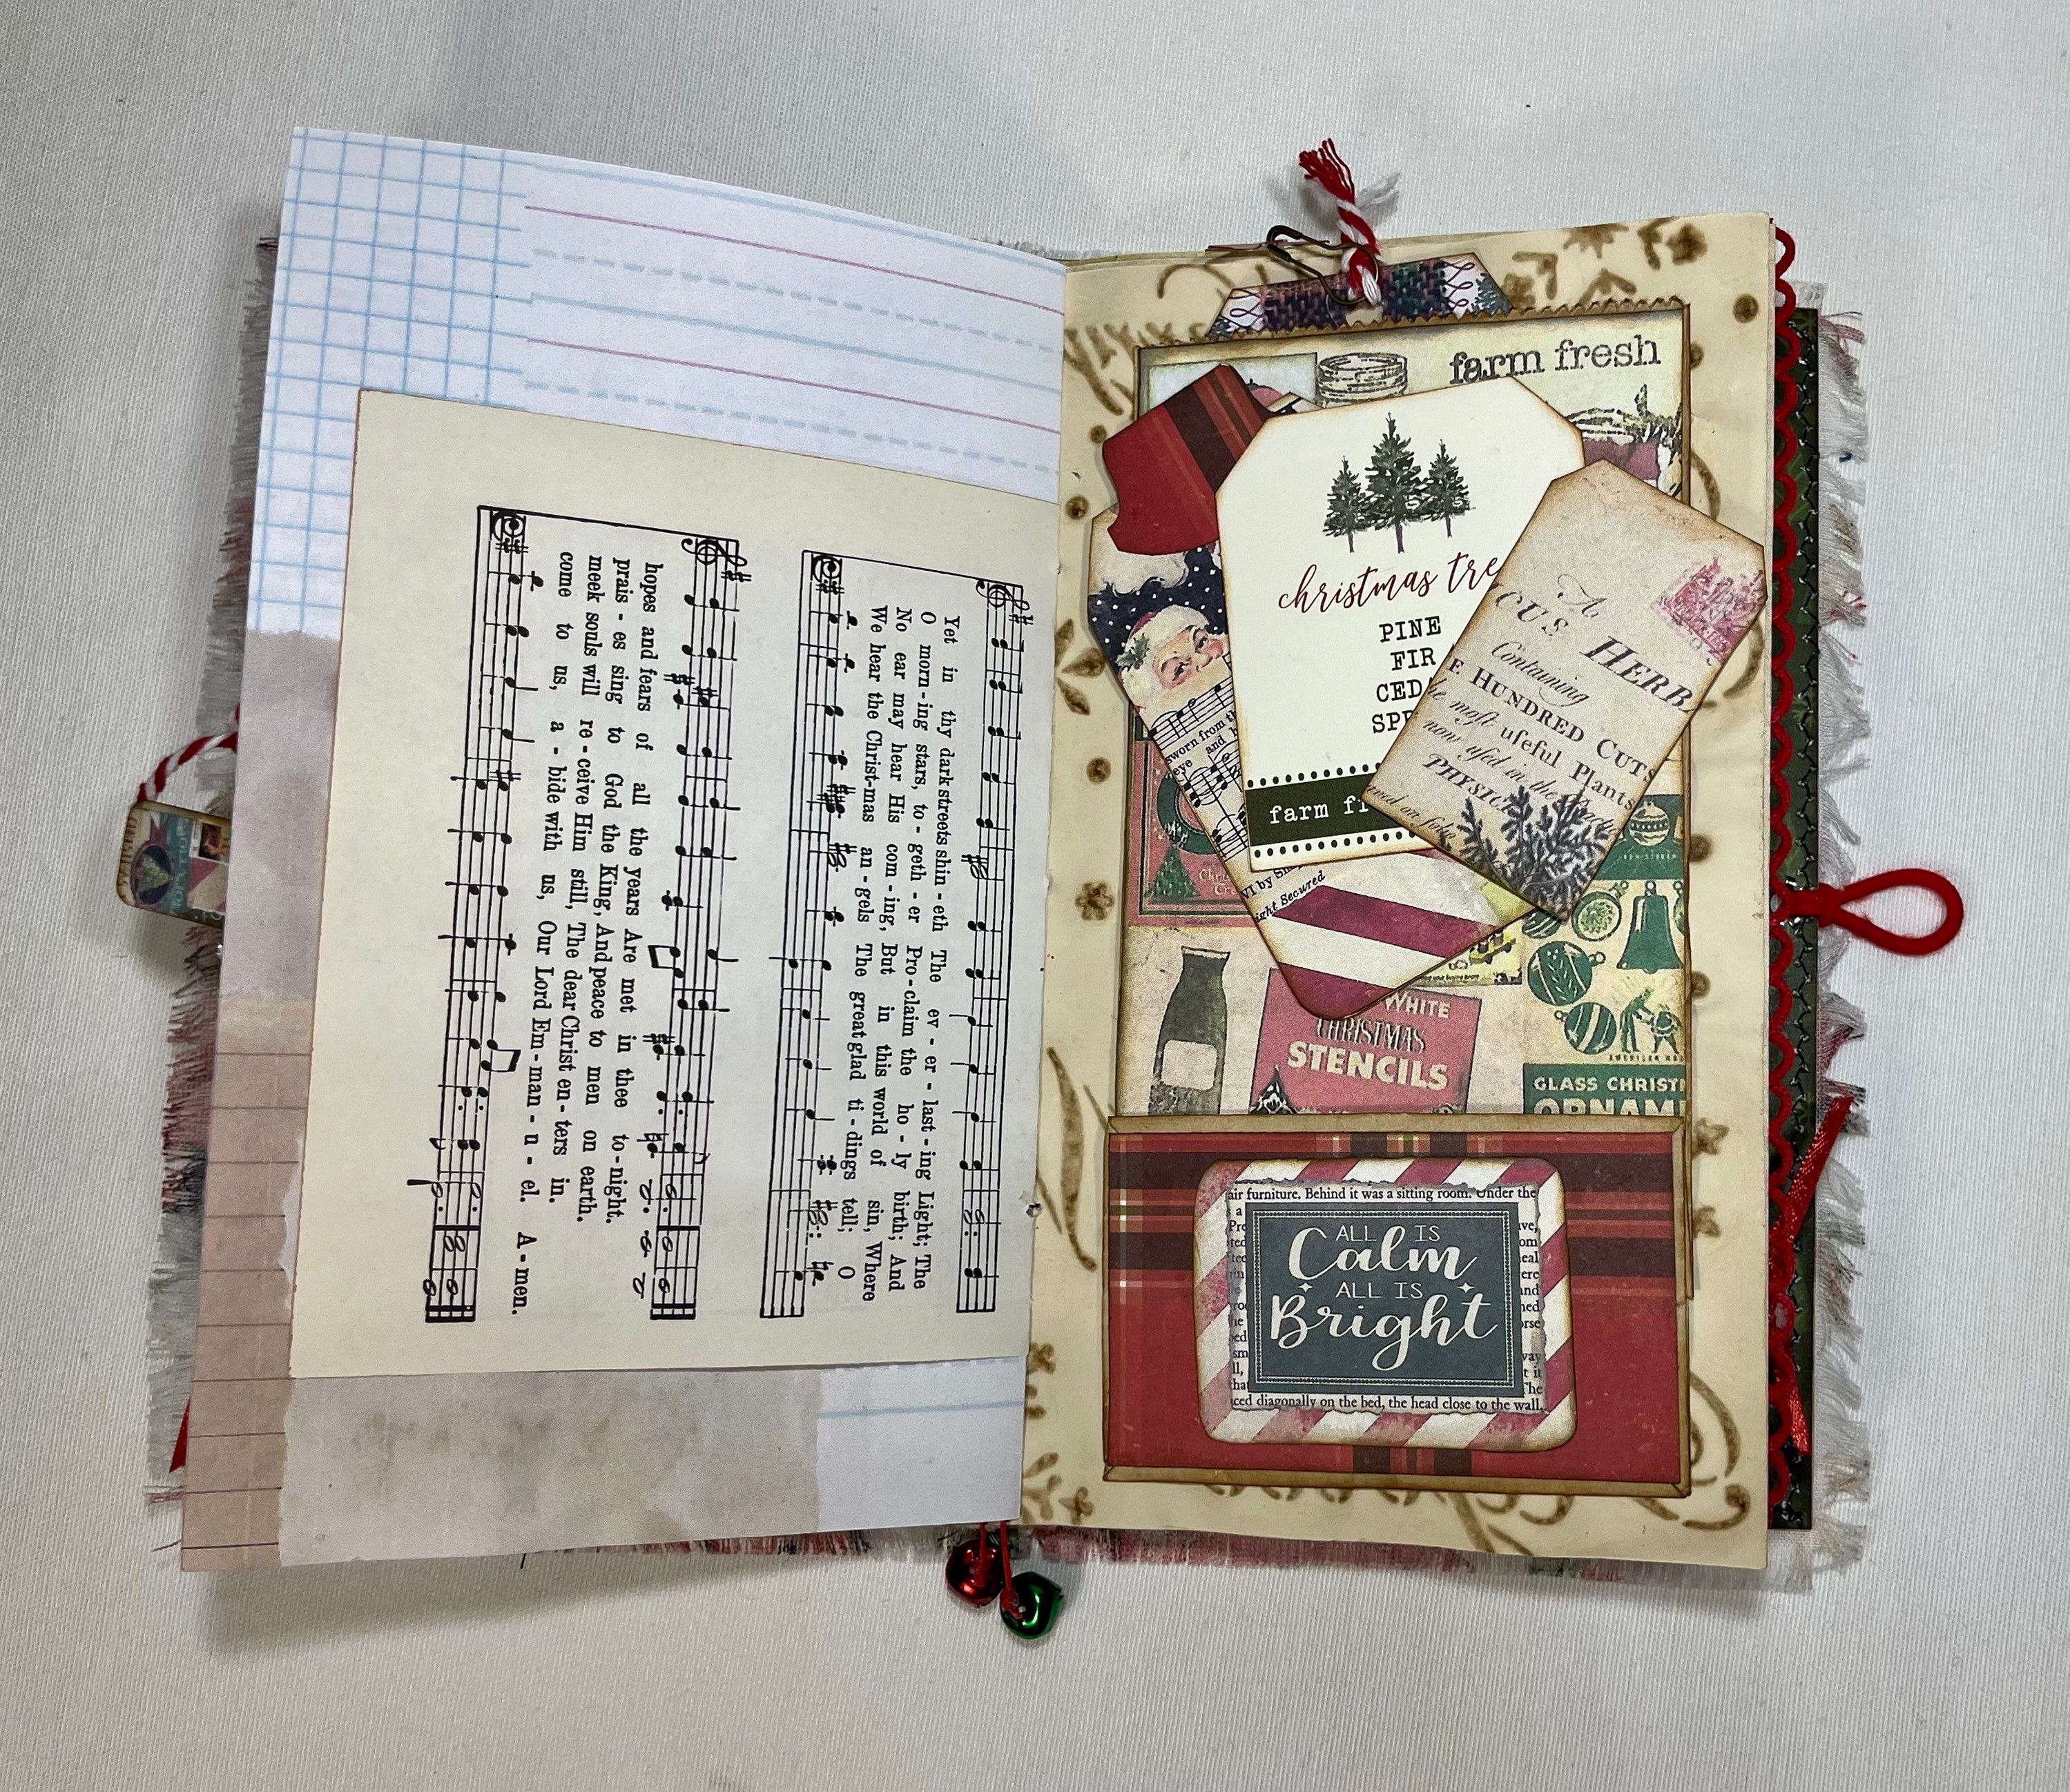 Yet in thy dark streets shin - eth The ev - er - last - ing Light; The
O morn - ing stars, to - geth - er Pro - claim the ho - ly birth; And
No ear may hear His com - ing, But in this world of sin, Where
We hear the Christ - mas an - gels The great glad ti - dings tell; O
hopes and fears of all the years Are met in thee to - night.
prais - es sing to God the King, And peace to men on earth.
meek souls will re - ceive Him still, The dear Christ en - ters in.
come to us, a - bide with us, Our Lord Em - man - u - el. A - men.
farm fresh
christmas tre
PINE
FIR
CED
SP
farm f
A
CUS HERB
Containing
E HUNDRED CUTS
he most useful Plants
now used in the
PHYSIC
sworn from th
eye and
VI by
ight Secured
WHITE
CHRISTMAS
STENCILS
GLASS CHRISTM
ORNAM
air furniture. Behind it was a sitting room. Under the
ALL IS
Calm
ALL IS
Bright
ced diagonally on the bed, the head close to the wall.